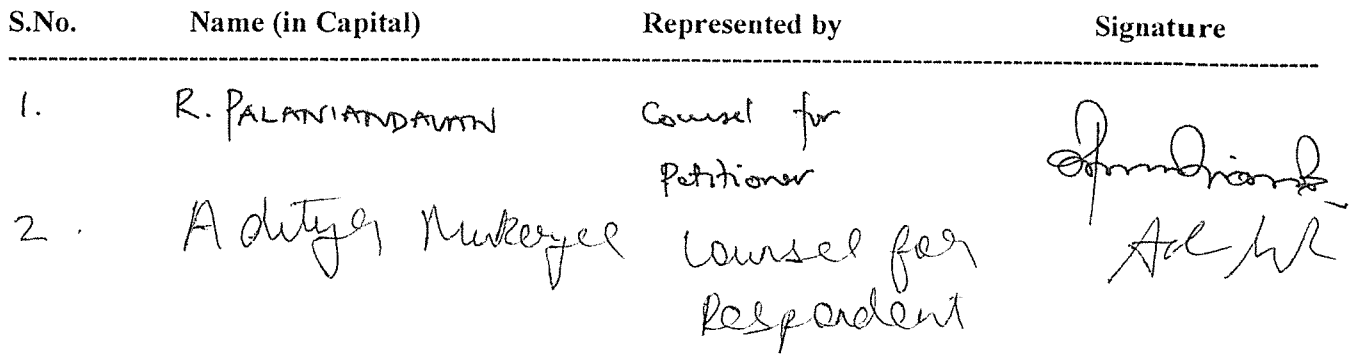 S.No. Name (in Capital) Represented by Signature
1. R. PALANIANDAVAN Counsel for
Petitioner
2. Aditya Mukerjee Counsel for
Respondent